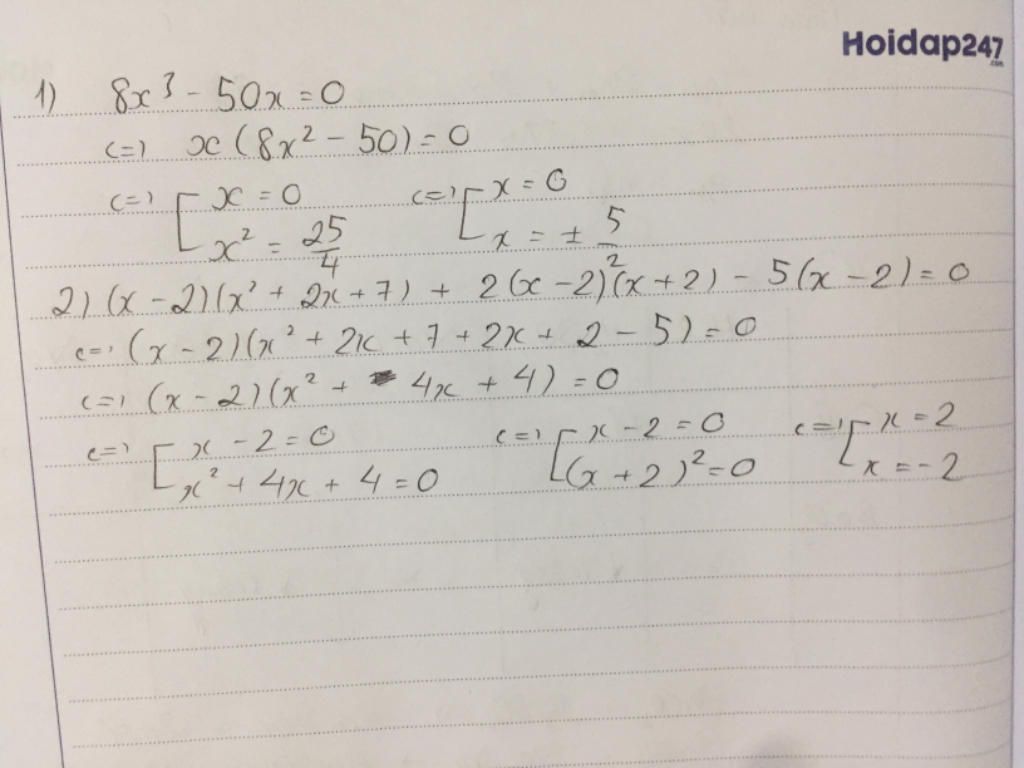 Hoidap247.com
1) 8x³ - 50x = 0
<=> x(8x² - 50) = 0
<=> [ x = 0 <=> [ x = 0
x² = 25/4 x = ± 5/2
2) (x - 2)(x² + 2x + 7) + 2(x - 2)²(x + 2) - 5(x - 2) = 0
<=> (x - 2)(x² + 2x + 7 + 2x + 2 - 5) = 0
<=> (x - 2)(x² + 4x + 4) = 0
<=> [ x - 2 = 0 <=> [ x - 2 = 0 <=> [ x = 2
x² + 4x + 4 = 0 (x + 2)² = 0 x = -2